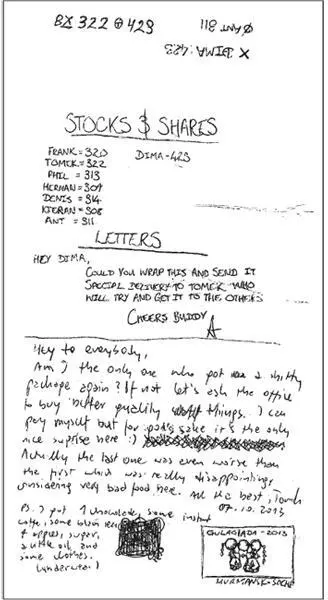 BX 322 ⊕ 423
Ø ANT 311
X DIMA: 423
STOCKS $ SHARES
FRANK = 320
TOMEK = 322
PHIL = 313
HERNAN = 309
DENIS = 314
KIERAN = 308
ANT = 311
DIMA - 423
LETTERS
HEY DIMA,
COULD YOU WRAP THIS AND SEND IT
SPECIAL DELIVERY TO TOMEK WHO
WILL TRY AND GET IT TO THE OTHERS
CHEERS BUDDY
A
Hey to everybody,
Am I the only one who got a shitty
package again? If not let's ask the office
to buy better quality things. I can
pay myself but for god's sake it's the only
nice suprise here :)
Actually the last one was even worse than
the first which was really disappointing
considering very bad food here. All the best,
07.10.2013
P.S. I got 1 chocolate, some instant
coffe, some
4 apples, sugar,
a little oil and
some clothes.
(underwear)
GULAGIADA - 2013
MURMANSK - SOCHI